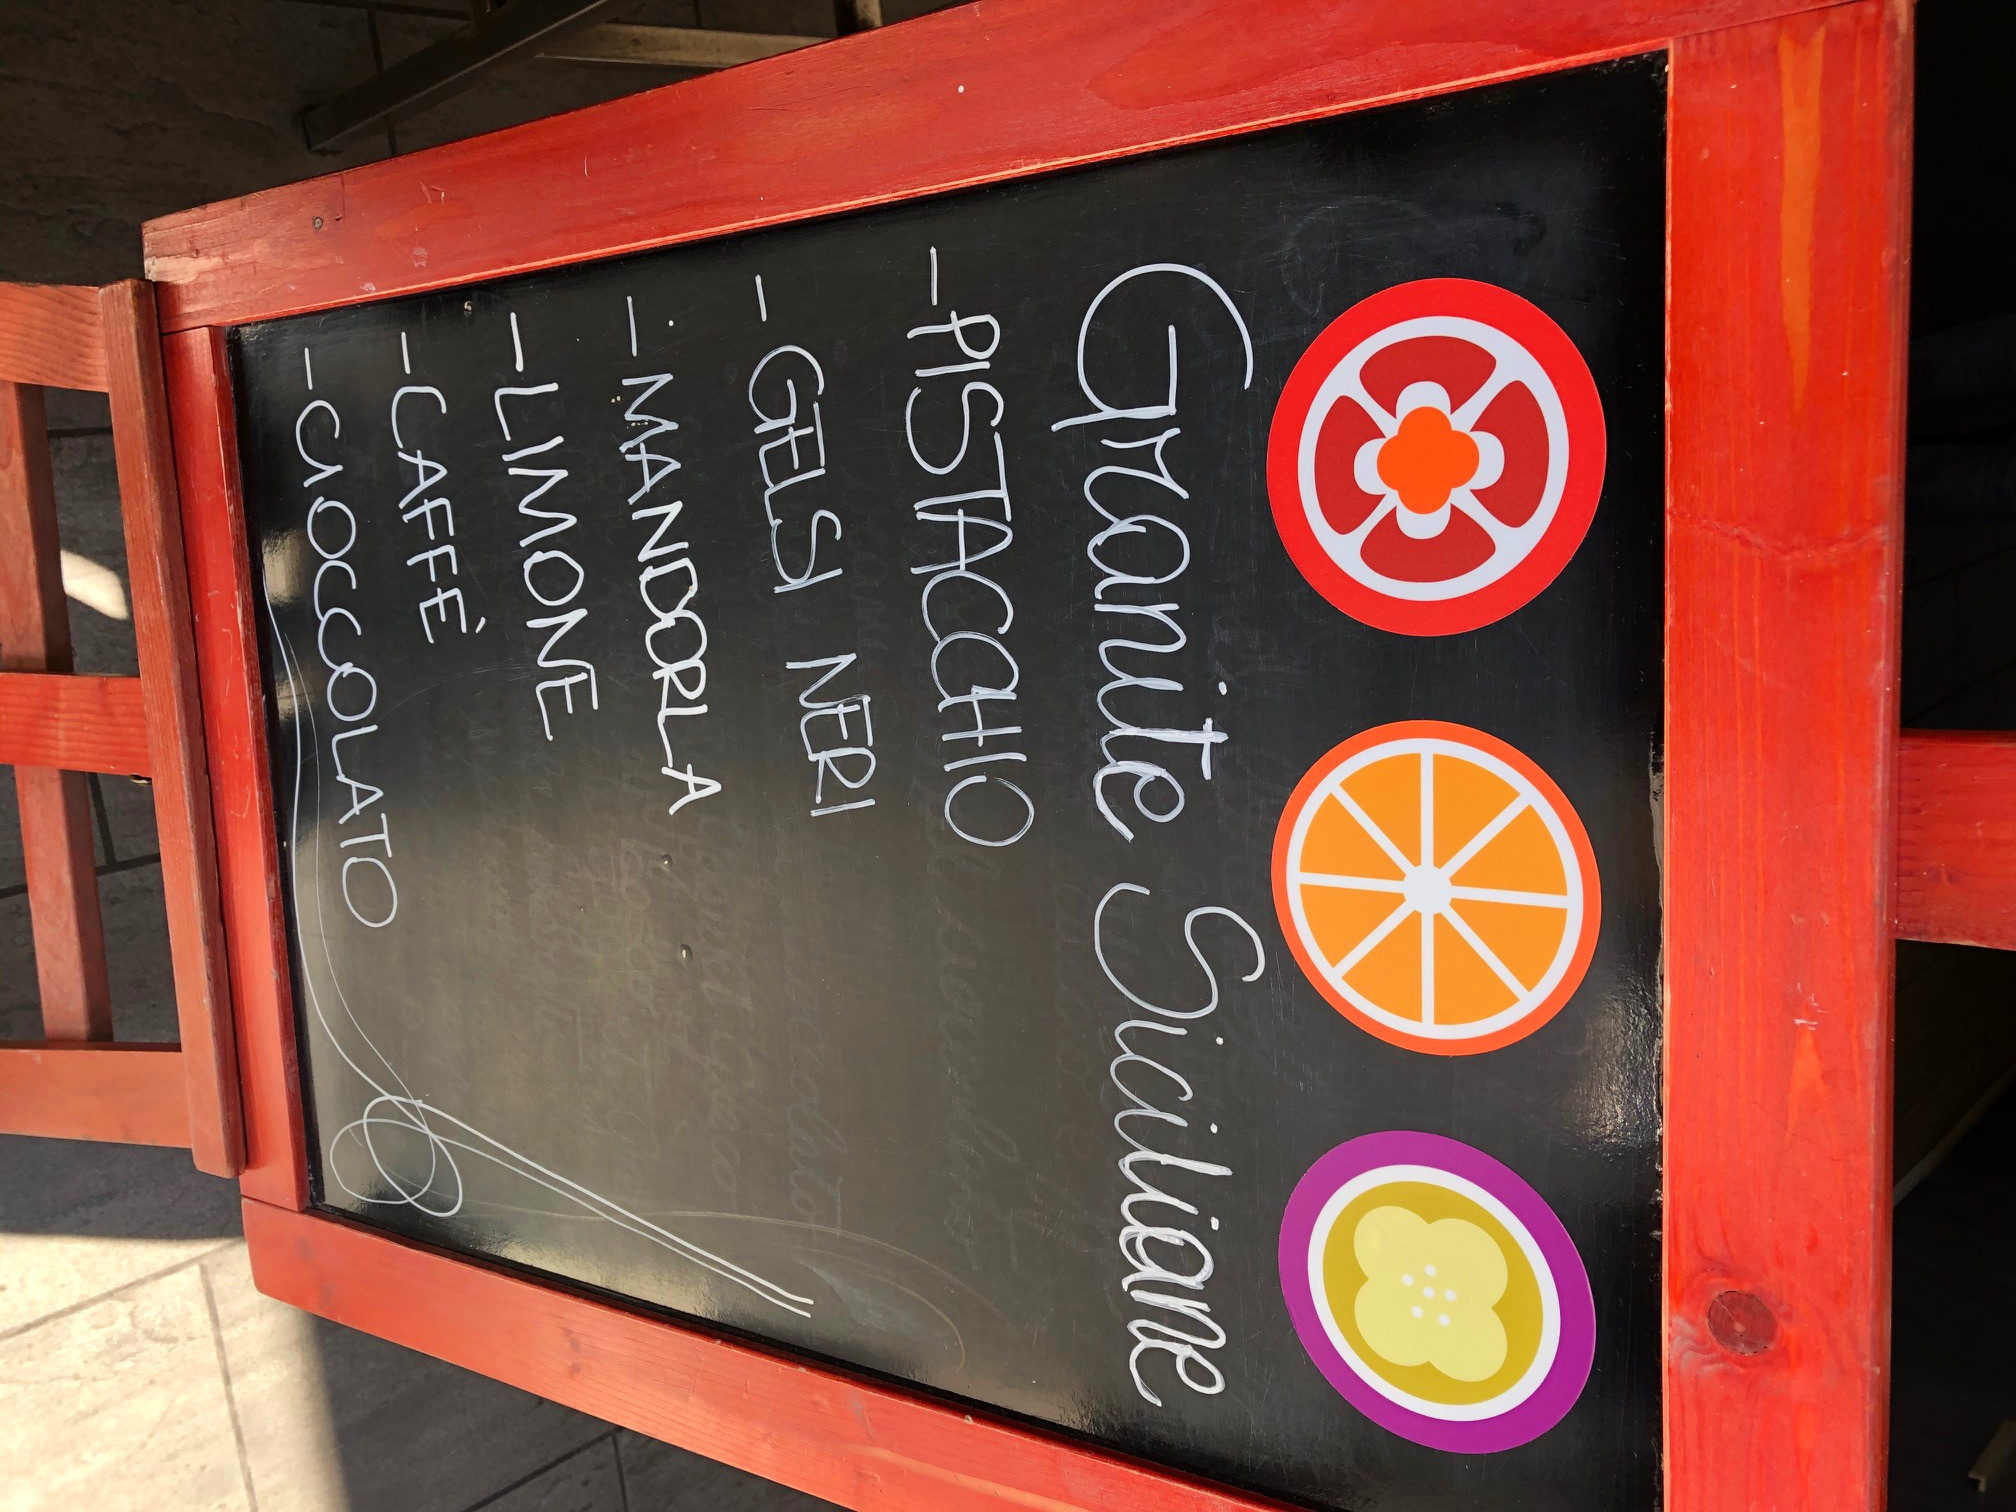 Granite Siciliane
- PISTACCHIO
- GELSI NERI
- MANDORLA
- LIMONE
- CAFFÉ
- CIOCCOLATO